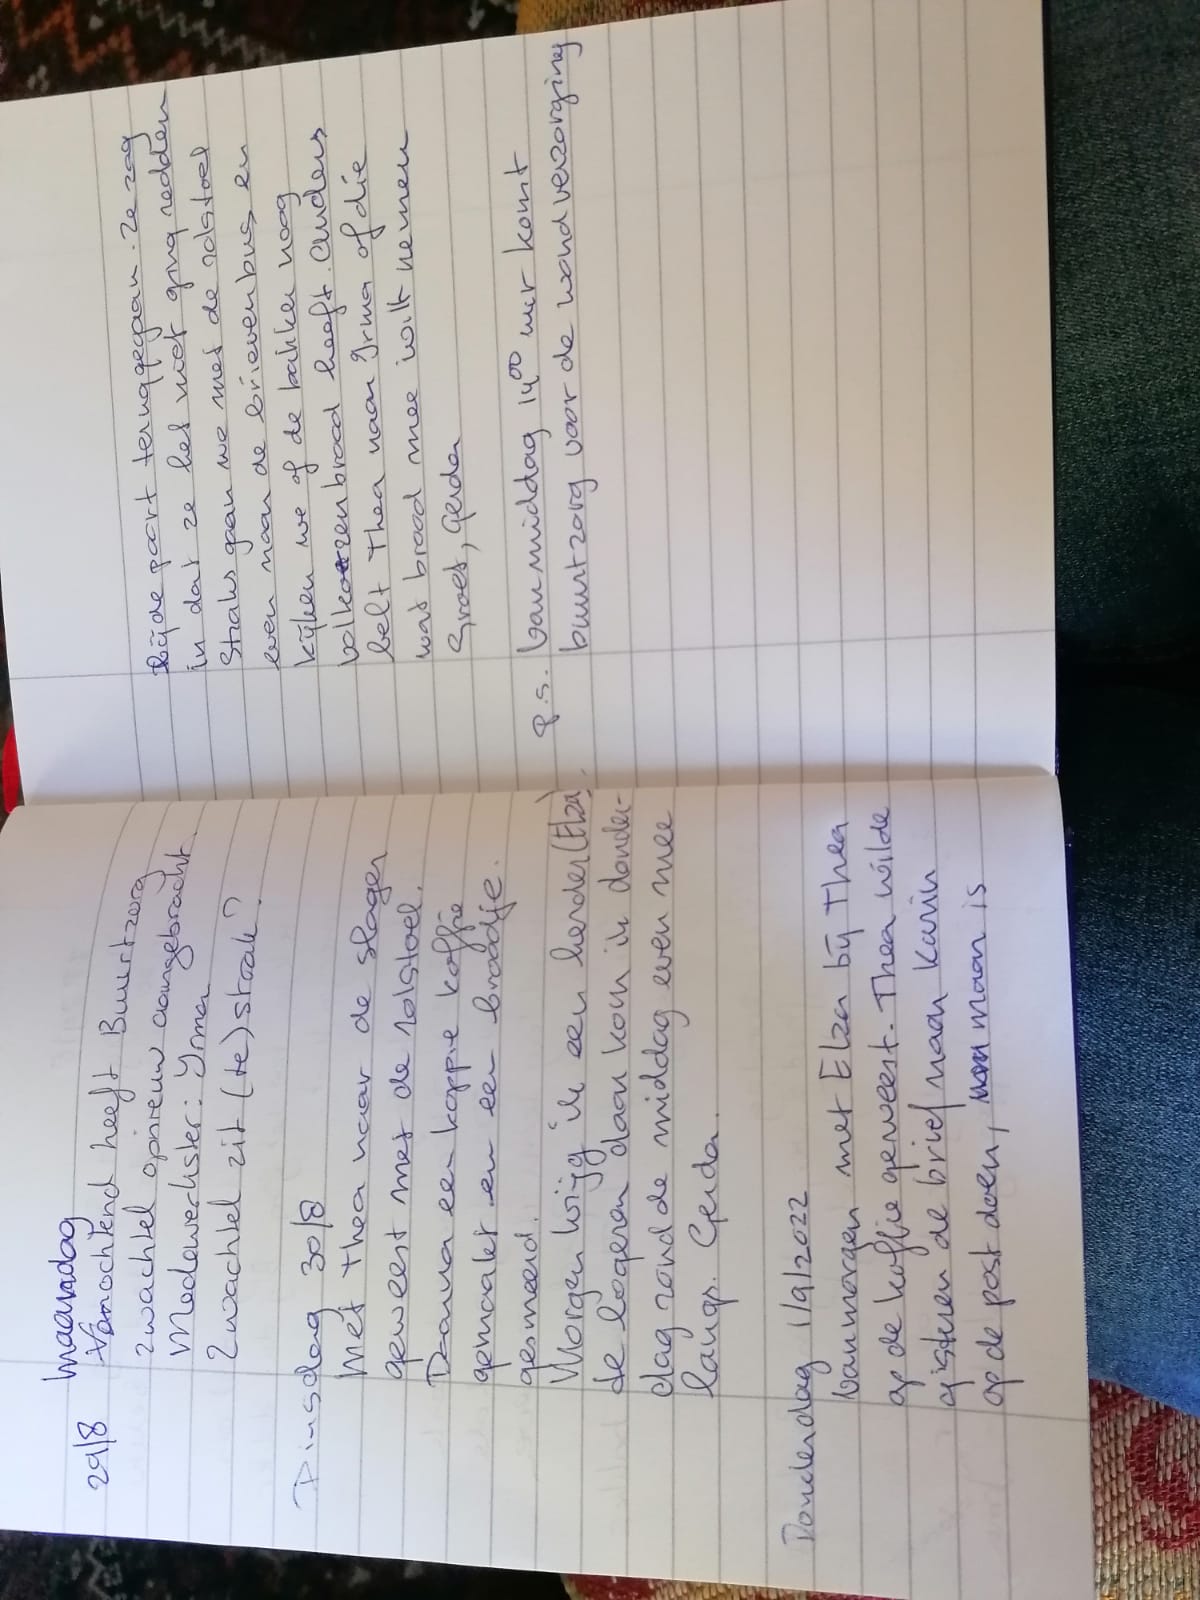 maandag
29/8 Vanochtend heeft Buurtzorg
zwachtel opnieuw aangebracht.
Medewerkster: Yrma
Zwachtel zit (te) strak?
Dinsdag 30/8
Met Thea naar de slager
geweest met de rolstoel.
Daarna een koppie koffie
gemaakt en een broodje
gesmeerd.
Morgen krijg ik een herder (Elza)
te logeren daar kom ik donder-
dag rond de middag even mee
langs. Gerda.
Donderdag 1/9/2022
Vanmorgen met Elza bij Thea
op de koffie geweest. Thea wilde
gisteren de brief naar Karin
op de post doen, maar is
bij de poort teruggegaan. Ze zag
in dat ze het niet ging redden
Straks gaan we met de rolstoel
even naar de brievenbus, en
kijken we of de bakker nog
volkorenbrood heeft. Anders
belt Thea naar Irma of die
wat brood mee wilt nemen
Groet, Gerda
P.S. Vanmiddag 14.00 uur komt
buurtzorg voor de wondverzorging